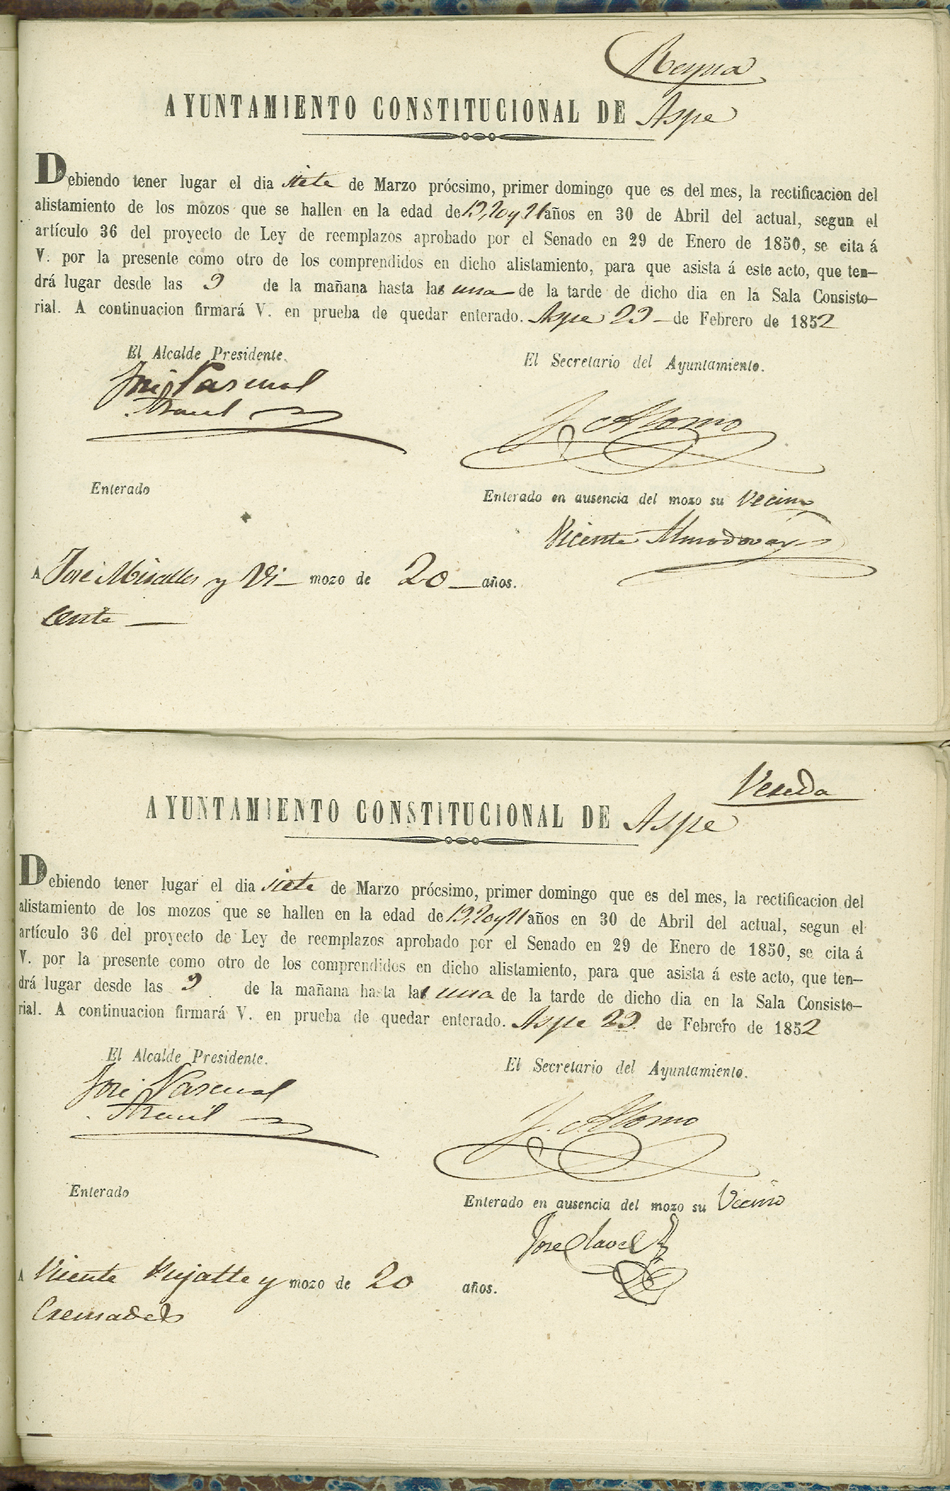 Reyna
AYUNTAMIENTO CONSTITUCIONAL DE Aspe
Debiendo tener lugar el dia siete de Marzo prócsimo, primer domingo que es del mes, la rectificacion del
alistamiento de los mozos que se hallen en la edad de 19, 20 y 21 años en 30 de Abril del actual, segun el
artículo 36 del proyecto de Ley de reemplazos aprobado por el Senado en 29 de Enero de 1850, se cita á
V. por la presente como otro de los comprendidos en dicho alistamiento, para que asista á este acto, que ten-
drá lugar desde las 9 de la mañana hasta la una de la tarde de dicho dia en la Sala Consisto-
rial. A continuacion firmará V. en prueba de quedar enterado. Aspe 29 de Febrero de 1852
El Alcalde Presidente.
El Secretario del Ayuntamiento.
José Pascual
J. Alonso
Enterado
Enterado en ausencia del mozo su Vecino
Vicente Almodovar
A José Miralles y Vi- mozo de 20 años.
cente
Vereda
AYUNTAMIENTO CONSTITUCIONAL DE Aspe
Debiendo tener lugar el dia siete de Marzo prócsimo, primer domingo que es del mes, la rectificacion del
alistamiento de los mozos que se hallen en la edad de 19, 20 y 21 años en 30 de Abril del actual, segun el
artículo 36 del proyecto de Ley de reemplazos aprobado por el Senado en 29 de Enero de 1850, se cita á
V. por la presente como otro de los comprendidos en dicho alistamiento, para que asista á este acto, que ten-
drá lugar desde las 9 de la mañana hasta la una de la tarde de dicho dia en la Sala Consisto-
rial. A continuacion firmará V. en prueba de quedar enterado. Aspe 29 de Febrero de 1852
El Alcalde Presidente.
El Secretario del Ayuntamiento.
José Pascual
J. Alonso
Enterado
Enterado en ausencia del mozo su Vecino
Jose
A Vicente Pujalte y mozo de 20 años.
Cremades